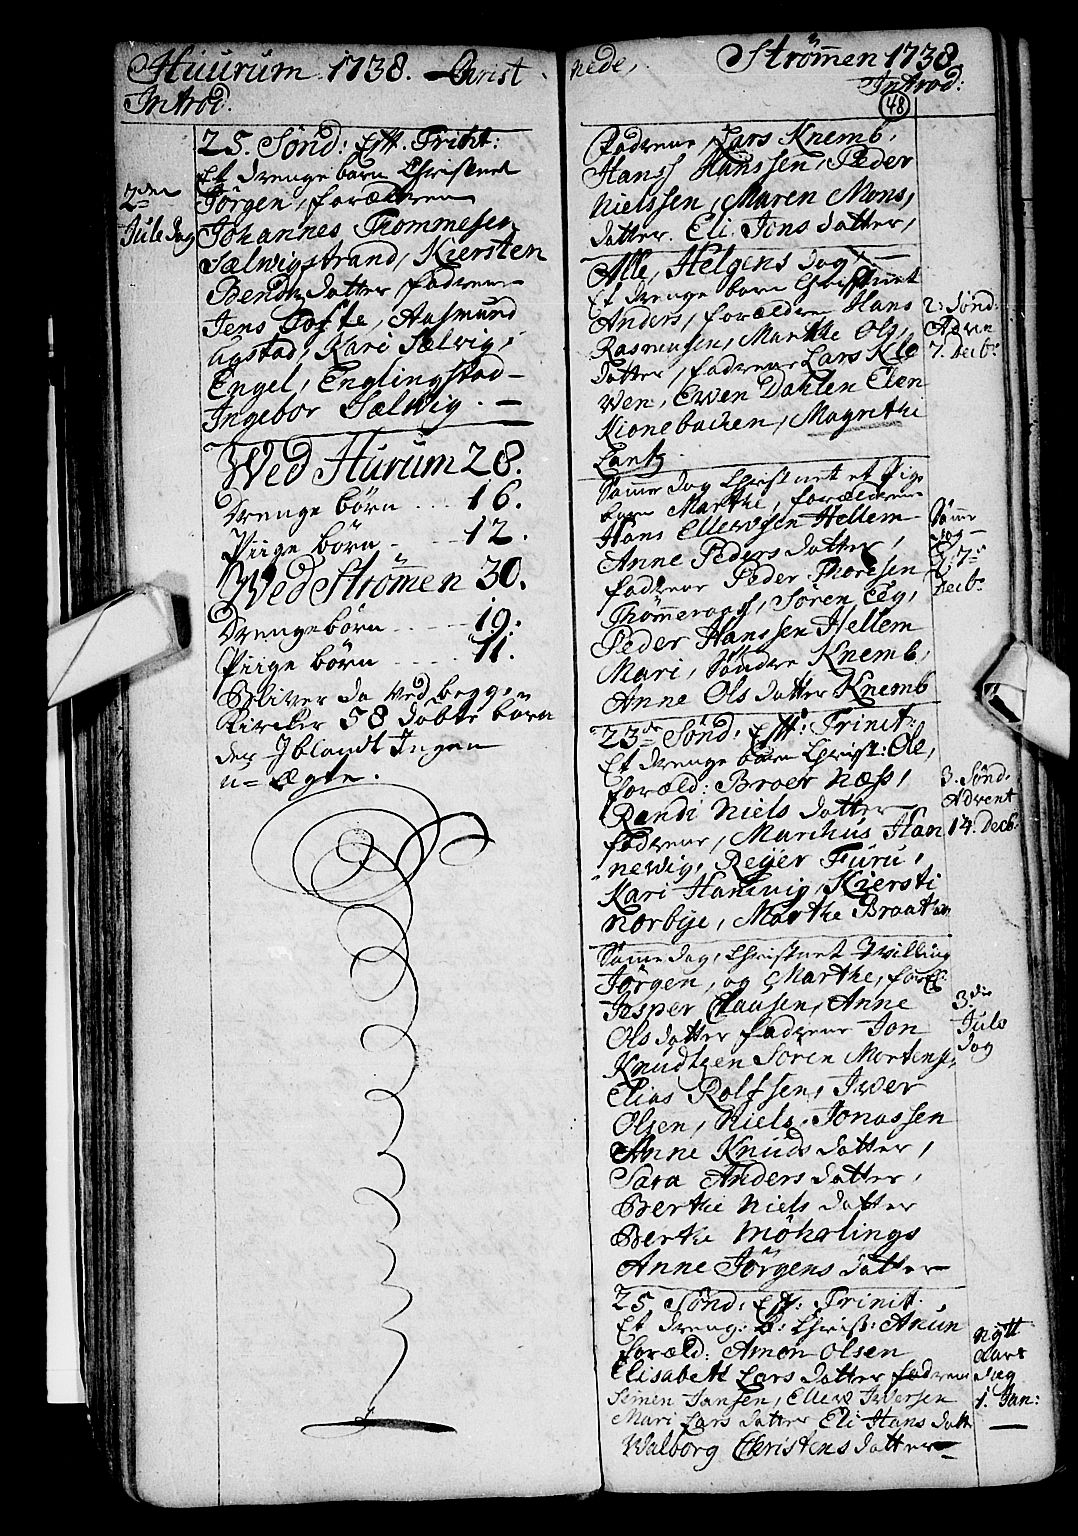 Huurum 1738. Christ
Introd.
25. Sønd: Eftt. Trinit:
Et drenge barn Christnet
2den
Juledag
Jörgen, forældrene
Johannes Trommesen
Sælvigstrand, Kiersten
Bends datter fadrene
Jens Tofte, Aasmund
Aagstad, Kari Sælvig,
Engel, Englingstad
Ingebor Sælvig.
Wed Hurum 28.
Drenge börn .... 16.
Piige börn - ... 12.
Wed Strömmen 30.
Drengebörn .... 19.
Piige börn .... 11.
Bliver da ved begge
Kircker 58 döbte börn
der Iblandt Ingen
u=Ægte.
nede, Strömmen 1738
Introd:
48
Fadrene, Lars Knemb,
Hanss Hanssen, Peder
Nielssen, Maren Mons,
datter. Eli Jons datter,
Alle, Helgens dag,
Et drenge barn Christnet
Anders, forældre Hans
Rasmusen, Marthe Ols,
datter, fadrene Lars Kle
wen, Ewen Dahlen Elen
Kionebachen, Magrethe
Lantz.
2: Sønd:
Adven
7. Decb:
Samme dag Christnet et Pige
barn Marthe, forældrene
Hans Ellewsen Hellem
Anne Peders datter,
fadrene Peder Thoresen
Trömmeraas, Sören Eeg,
Peder Hanssen Hellem
Mari, Søndre Knemb,
Anne Ols datter Knemb
Samme
dag
7de
Decb:
23de Sønd: Eftt: Trinit:
Et drenge barn Christ: Ole,
foræld: Broer Næss,
Randi Niels datter
fadrene, Marchus Han
newig, Reyer Furu,
Kari Hannevig, Kiersti
Norbye, Marthe Braaten
3. Sønd,
Advent
14. Decb:
Samme dag, Christnet Twilling
Jörgen, og Marthe, foræl:
Jesper Clausen, Anne
Ols datter fadrene Jon
Knudtzen Sören Mortensen,
Elias Rolfsen, Iwer
Olsen, Niels Jonassen
Anne Knuds datter,
Sara Anders datter,
Berthe Niels datter
Berthe Möhrlings
Anne Jörgens datter
3die
Jule
dag
25 Sønd: Eft: Trinit:
Et dreng: B: Christ: Anun
foræld: Amon Olsen
Elisabett Lars datter fadrene
Simen Jansen, Ellew Iversen
Mari Lars datter Eli Hans datt
Walborg Christens datter
Nytt
Aars
dag
1. Jan: